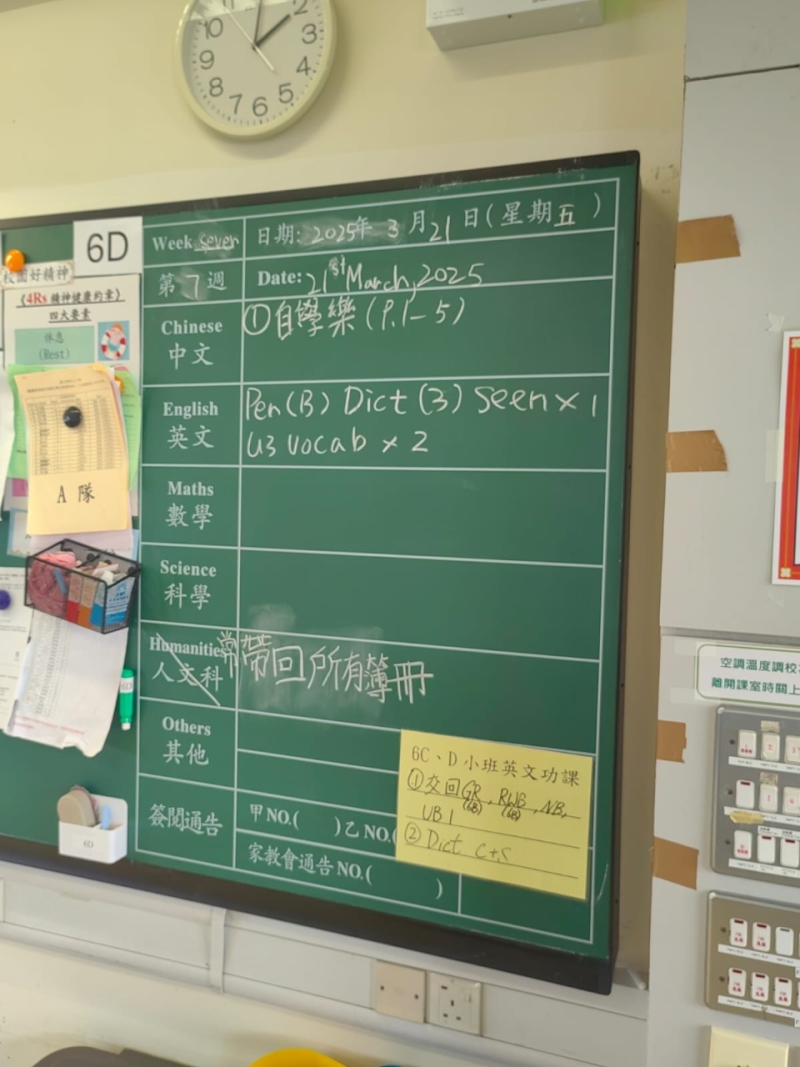 10
2
3
4
5
6
7
8
9
6D
校園好精神
《4Rs 精神健康約章》
四大要素
休息
(Rest)
A 隊
6D
Week seven
日期: 2025年 3 月 21 日 (星期五)
第 7 週
Date: 21st March, 2025
Chinese
中文
① 自學樂 (P.1-5)
English
英文
Pen(B) Dict (3) Seen x 1
U3 vocab x 2
Maths
數學
Science
科學
Humanities
人文科
常帶回所有簿冊
Others
其他
簽閱通告
甲NO.( )乙NO.(
家教會通告NO.( )
6C、D小班英文功課
① 交回GR, RWB, NB,
(6B) (6B)
UB1
② Dict C+S
空調溫度調校
離開課室時關上